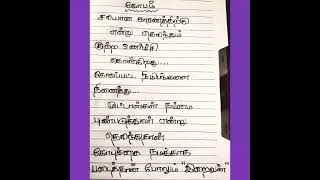 கோபம்
சரியான காரணத்திற்கு
என்று தெரிந்தும்
குற்ற உணர்ச்சி
கொள்கிறது...
கோபப்பட்ட நிமிடங்களை
நினைத்து...
முட்டாள்கள் நம்மை
புண்படுத்துவர் என்று
தெரிந்துதான்
கோபத்தை நமக்காக
படைத்தான் போலும் "இறைவன்"